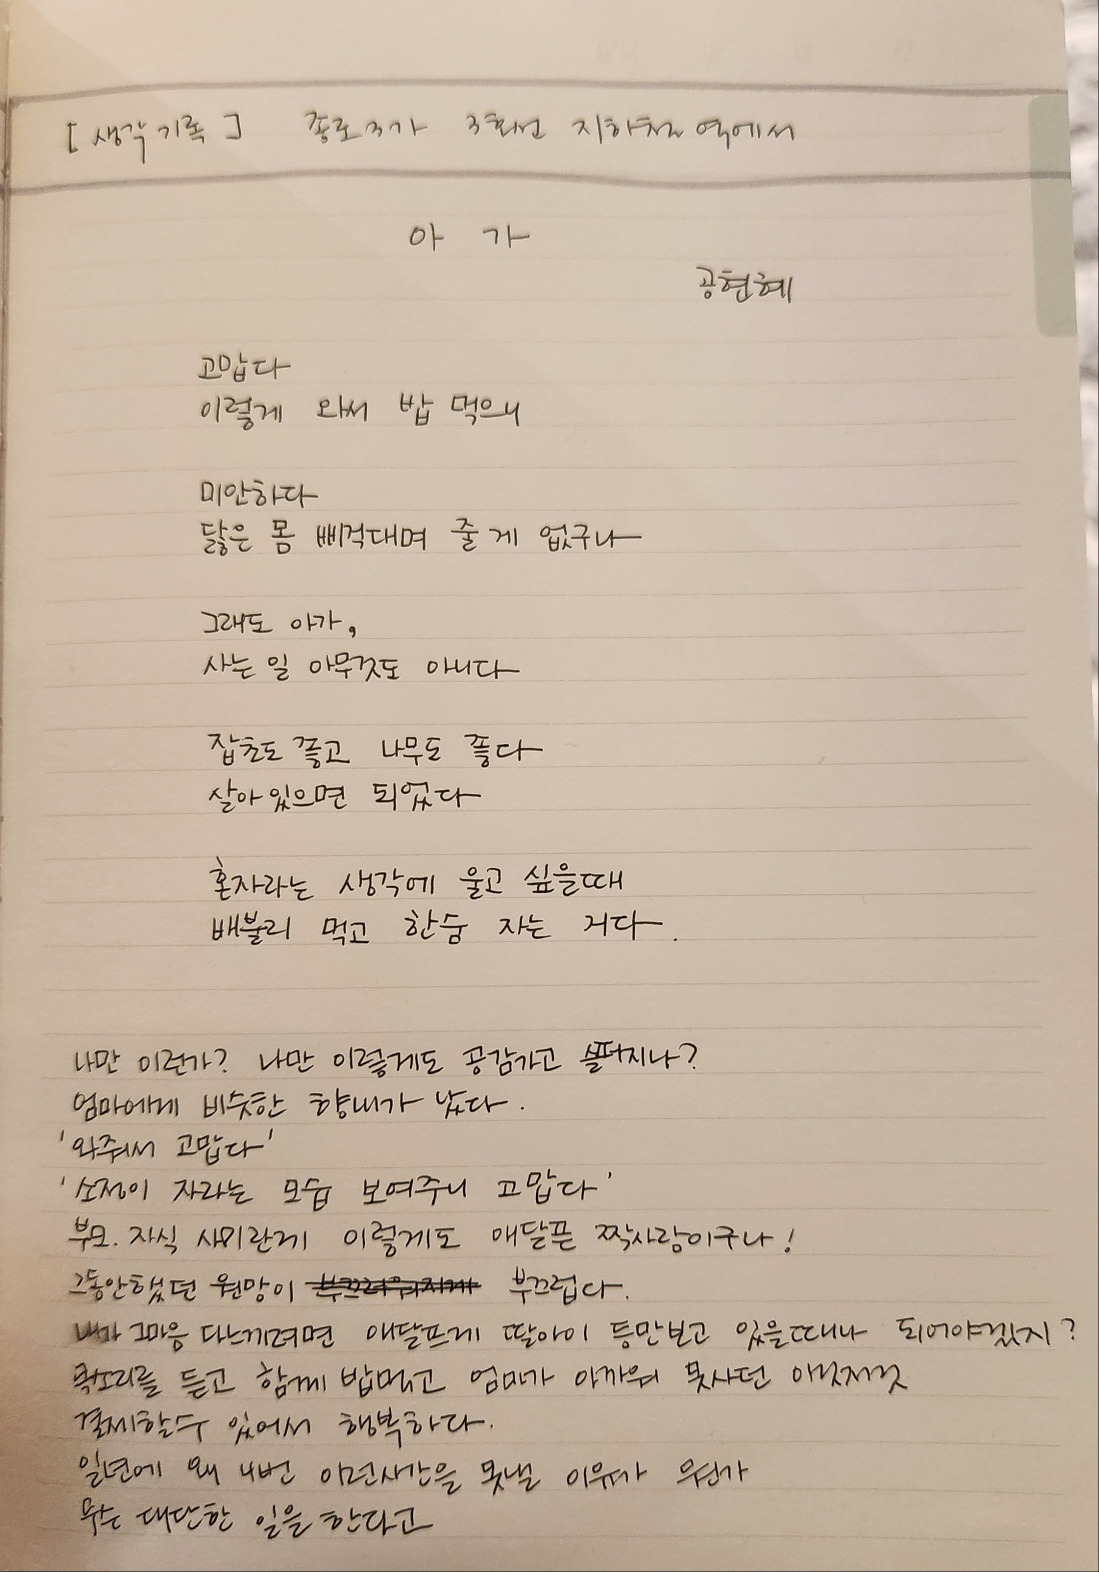 [생각기록] 종로3가 3호선 지하철역에서
아 가
공현혜
고맙다
이렇게 와서 밥 먹으니
미안하다
닳은 몸 삐걱대며 줄 게 없구나
그래도 아가,
사는 일 아무것도 아니다
잡초도 좋고 나무도 좋다
살아있으면 되었다
혼자라는 생각에 울고 싶을때
배불리 먹고 한숨 자는 거다.
나만 이런가? 나만 이렇게도 공감가고 슬퍼지나?
엄마에게 비슷한 향내가 났다.
'와줘서 고맙다'
'소정이 자라는 모습 보여주니 고맙다'
부모.자식 사이란게 이렇게도 애달픈 짝사랑이구나!
그동안했던 원망이 부끄럽다.
내가 그마음 다느끼려면 애달프게 딸아이 등만보고 있을때나 되어야겠지?
목소리를 듣고 함께 밥먹고 엄마가 아까워 못사던 이것저것
결제할수 있어서 행복하다.
일년에 왜 4번 이런시간을 못낼 이유가 뭔가
무슨 대단한 일을 한다고